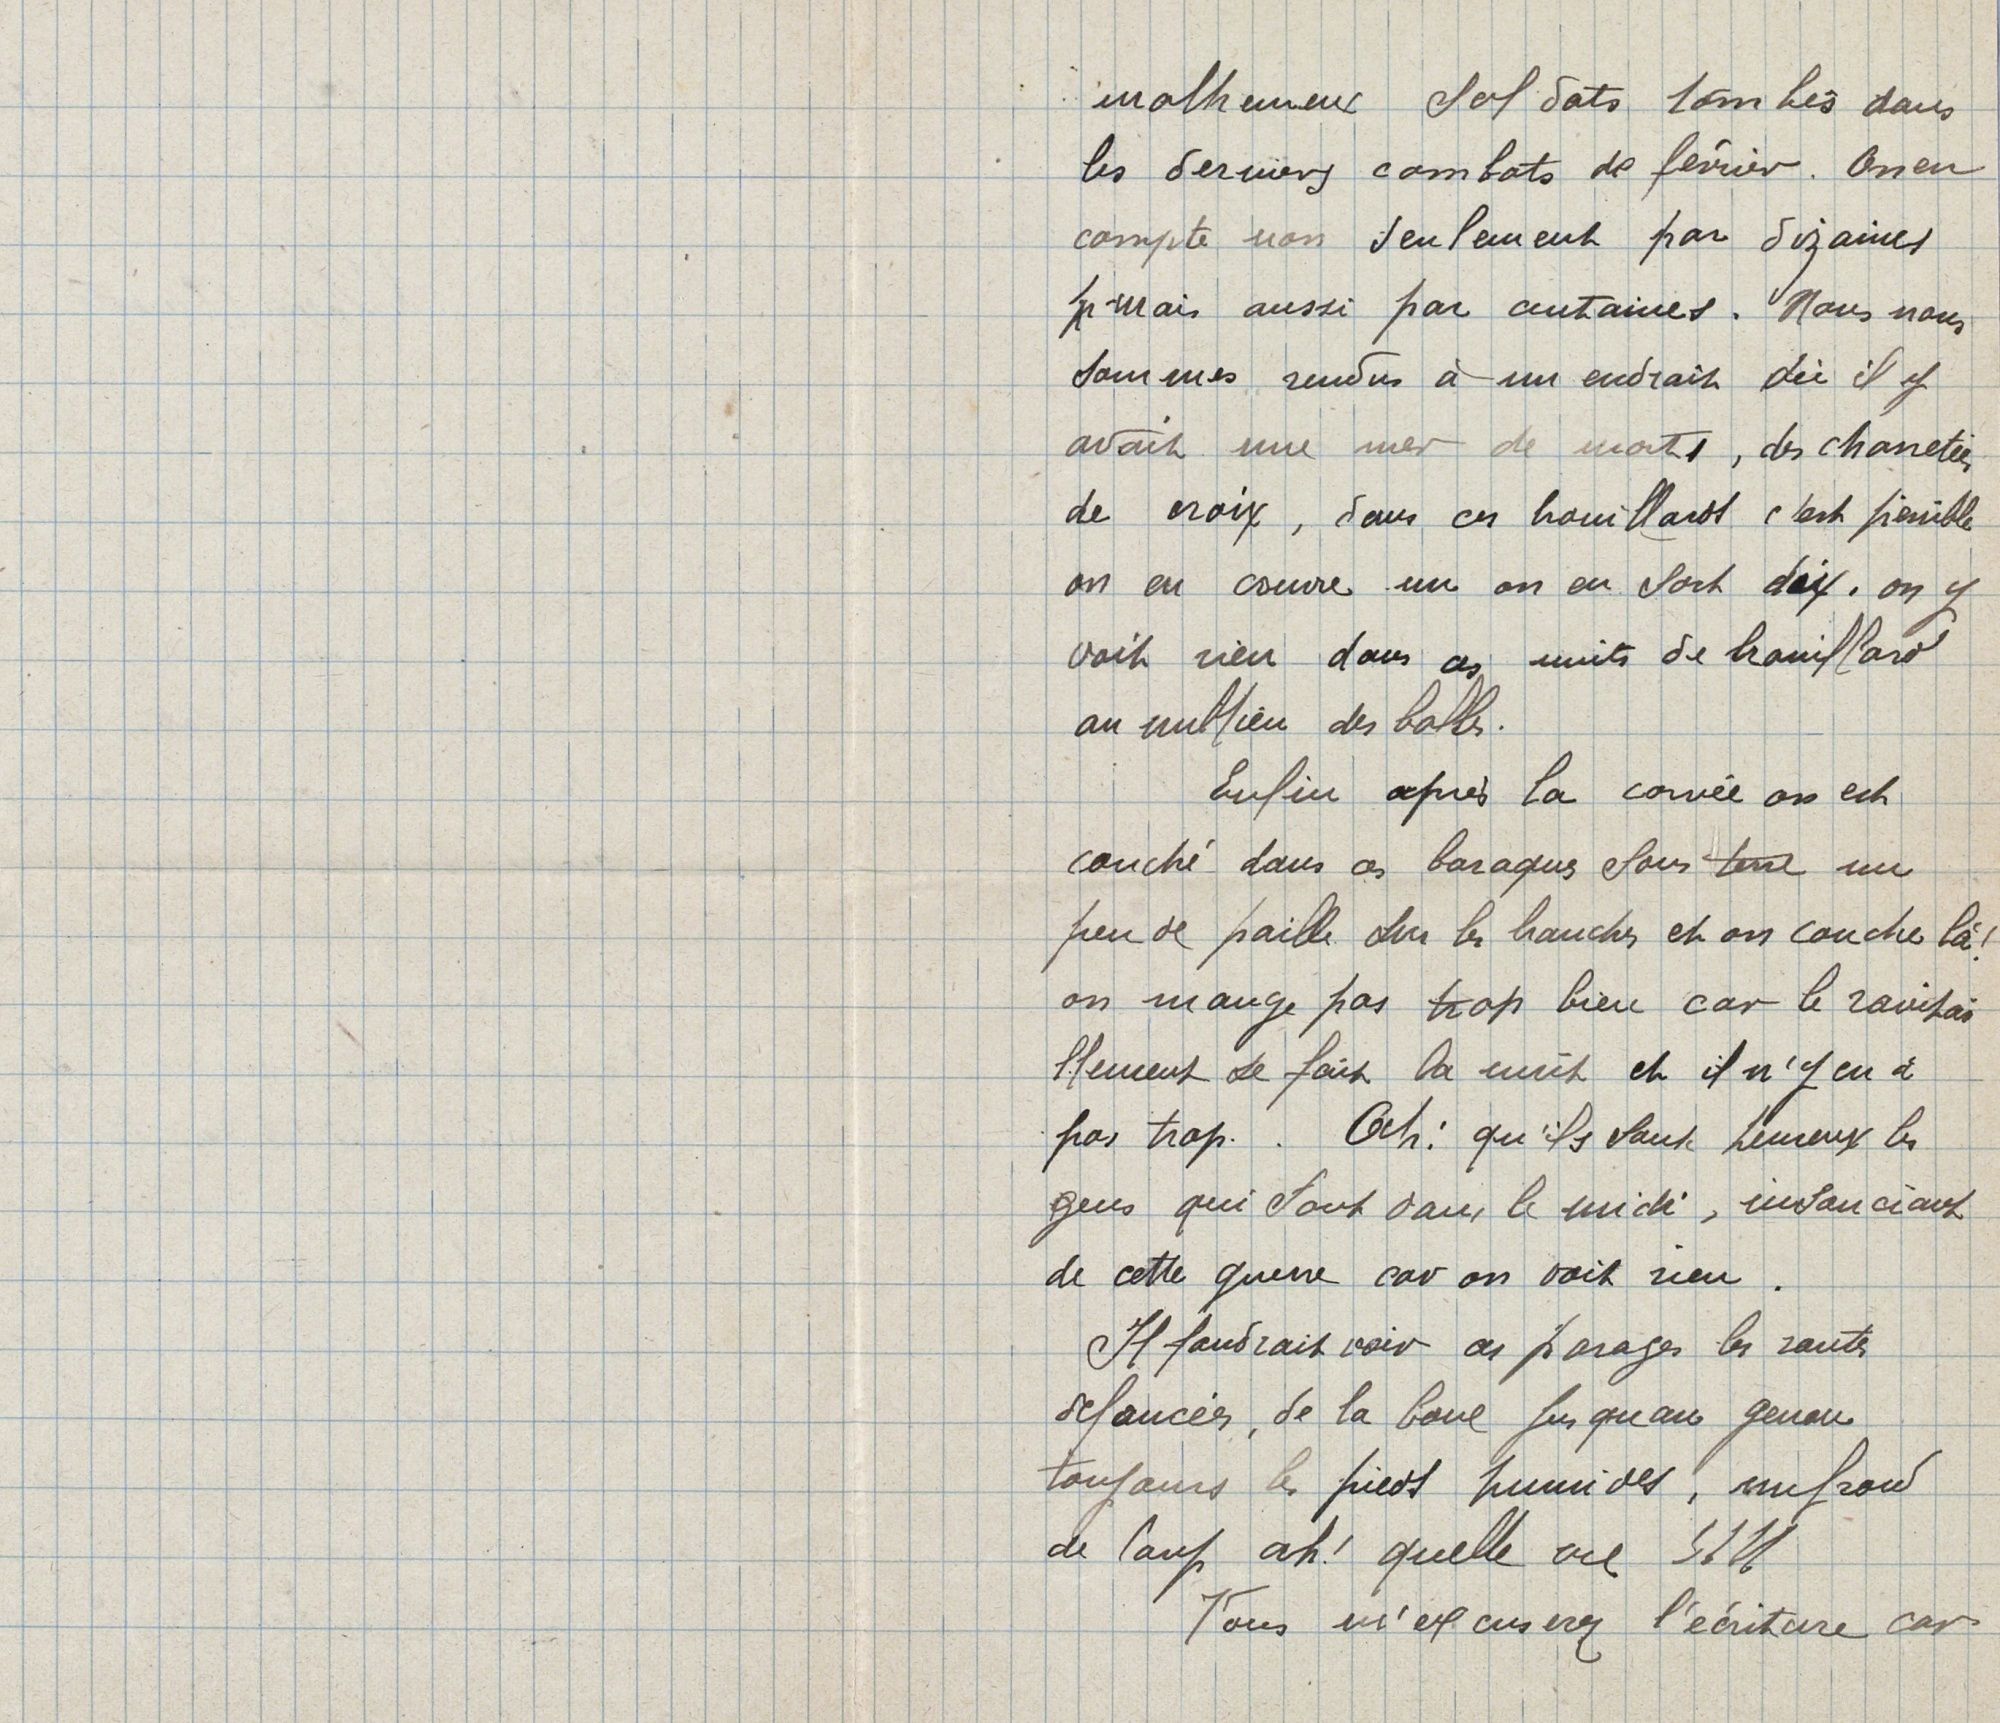 malheureux soldats tombés dans
les derniers combats de février. On en
compte non seulement par dizaines
mais aussi par centaines. Nous nous
sommes rendus à un endroit où il y
avait une mer de morts, des charretées
de croix, dans ces brouillards c'est pénible
on en couvre un on en sort dix. on y
voit rien dans ces nuits de brouillard
au millieu des balles.
Enfin après la corvée on est
couché dans ces baraques sous terre un
peu de paille sur les branches et on couche là!
on mange pas trop bien car le ravitai
llement se fait la nuit et il n'y en a
pas trop. Och! qu'ils sont heureux les
gens qui sont dans le midi, insouciant
de cette guerre car on voit rien.
Il faudrait voir ces parages les routes
défoncées, de la boue jusquau genou
toujours les pieds humides, un froid
de loup ah! quelle vie !!!!
Vous m'excuserez l'écriture car